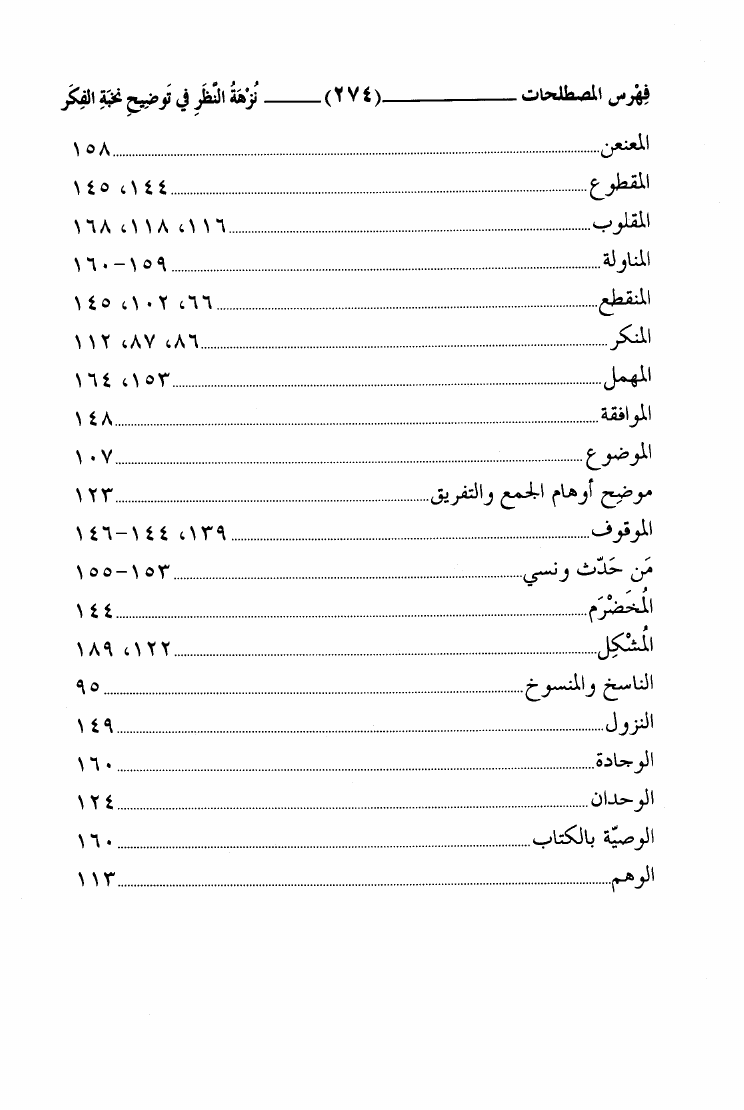 فِهْرس المصطلحات ـــــــــ (٢٧٤) ـــــــــ نُزْهَةُ النَّظَرِ في تَوضِيحِ نخبَةِ الفِكَر
المعنعن.....١٥٨
المقطوع.....١٤٤، ١٤٥
المقلوب.....١١٦، ١١٨، ١٦٨
المناولة.....١٥٩-١٦٠
المنقطع.....٦٦، ١٠٢، ١٤٥
المنكر.....٨٦، ٨٧، ١١٢
المهمل.....١٥٣، ١٦٤
الموافقة.....١٤٨
الموضوع.....١٠٧
موضِح أوهام الجمع والتفريق.....١٢٣
الموقوف.....١٣٩، ١٤٤-١٤٦
مَن حَدّث ونسي.....١٥٣-١٥٥
المُخَضْرَم.....١٤٤
المُشْكِل.....١٢٢، ١٨٩
الناسخ والمنسوخ.....٩٥
النزول.....١٤٩
الوجادة.....١٦٠
الوحدان.....١٢٤
الوصيّة بالكتاب.....١٦٠
الوهم.....١١٣